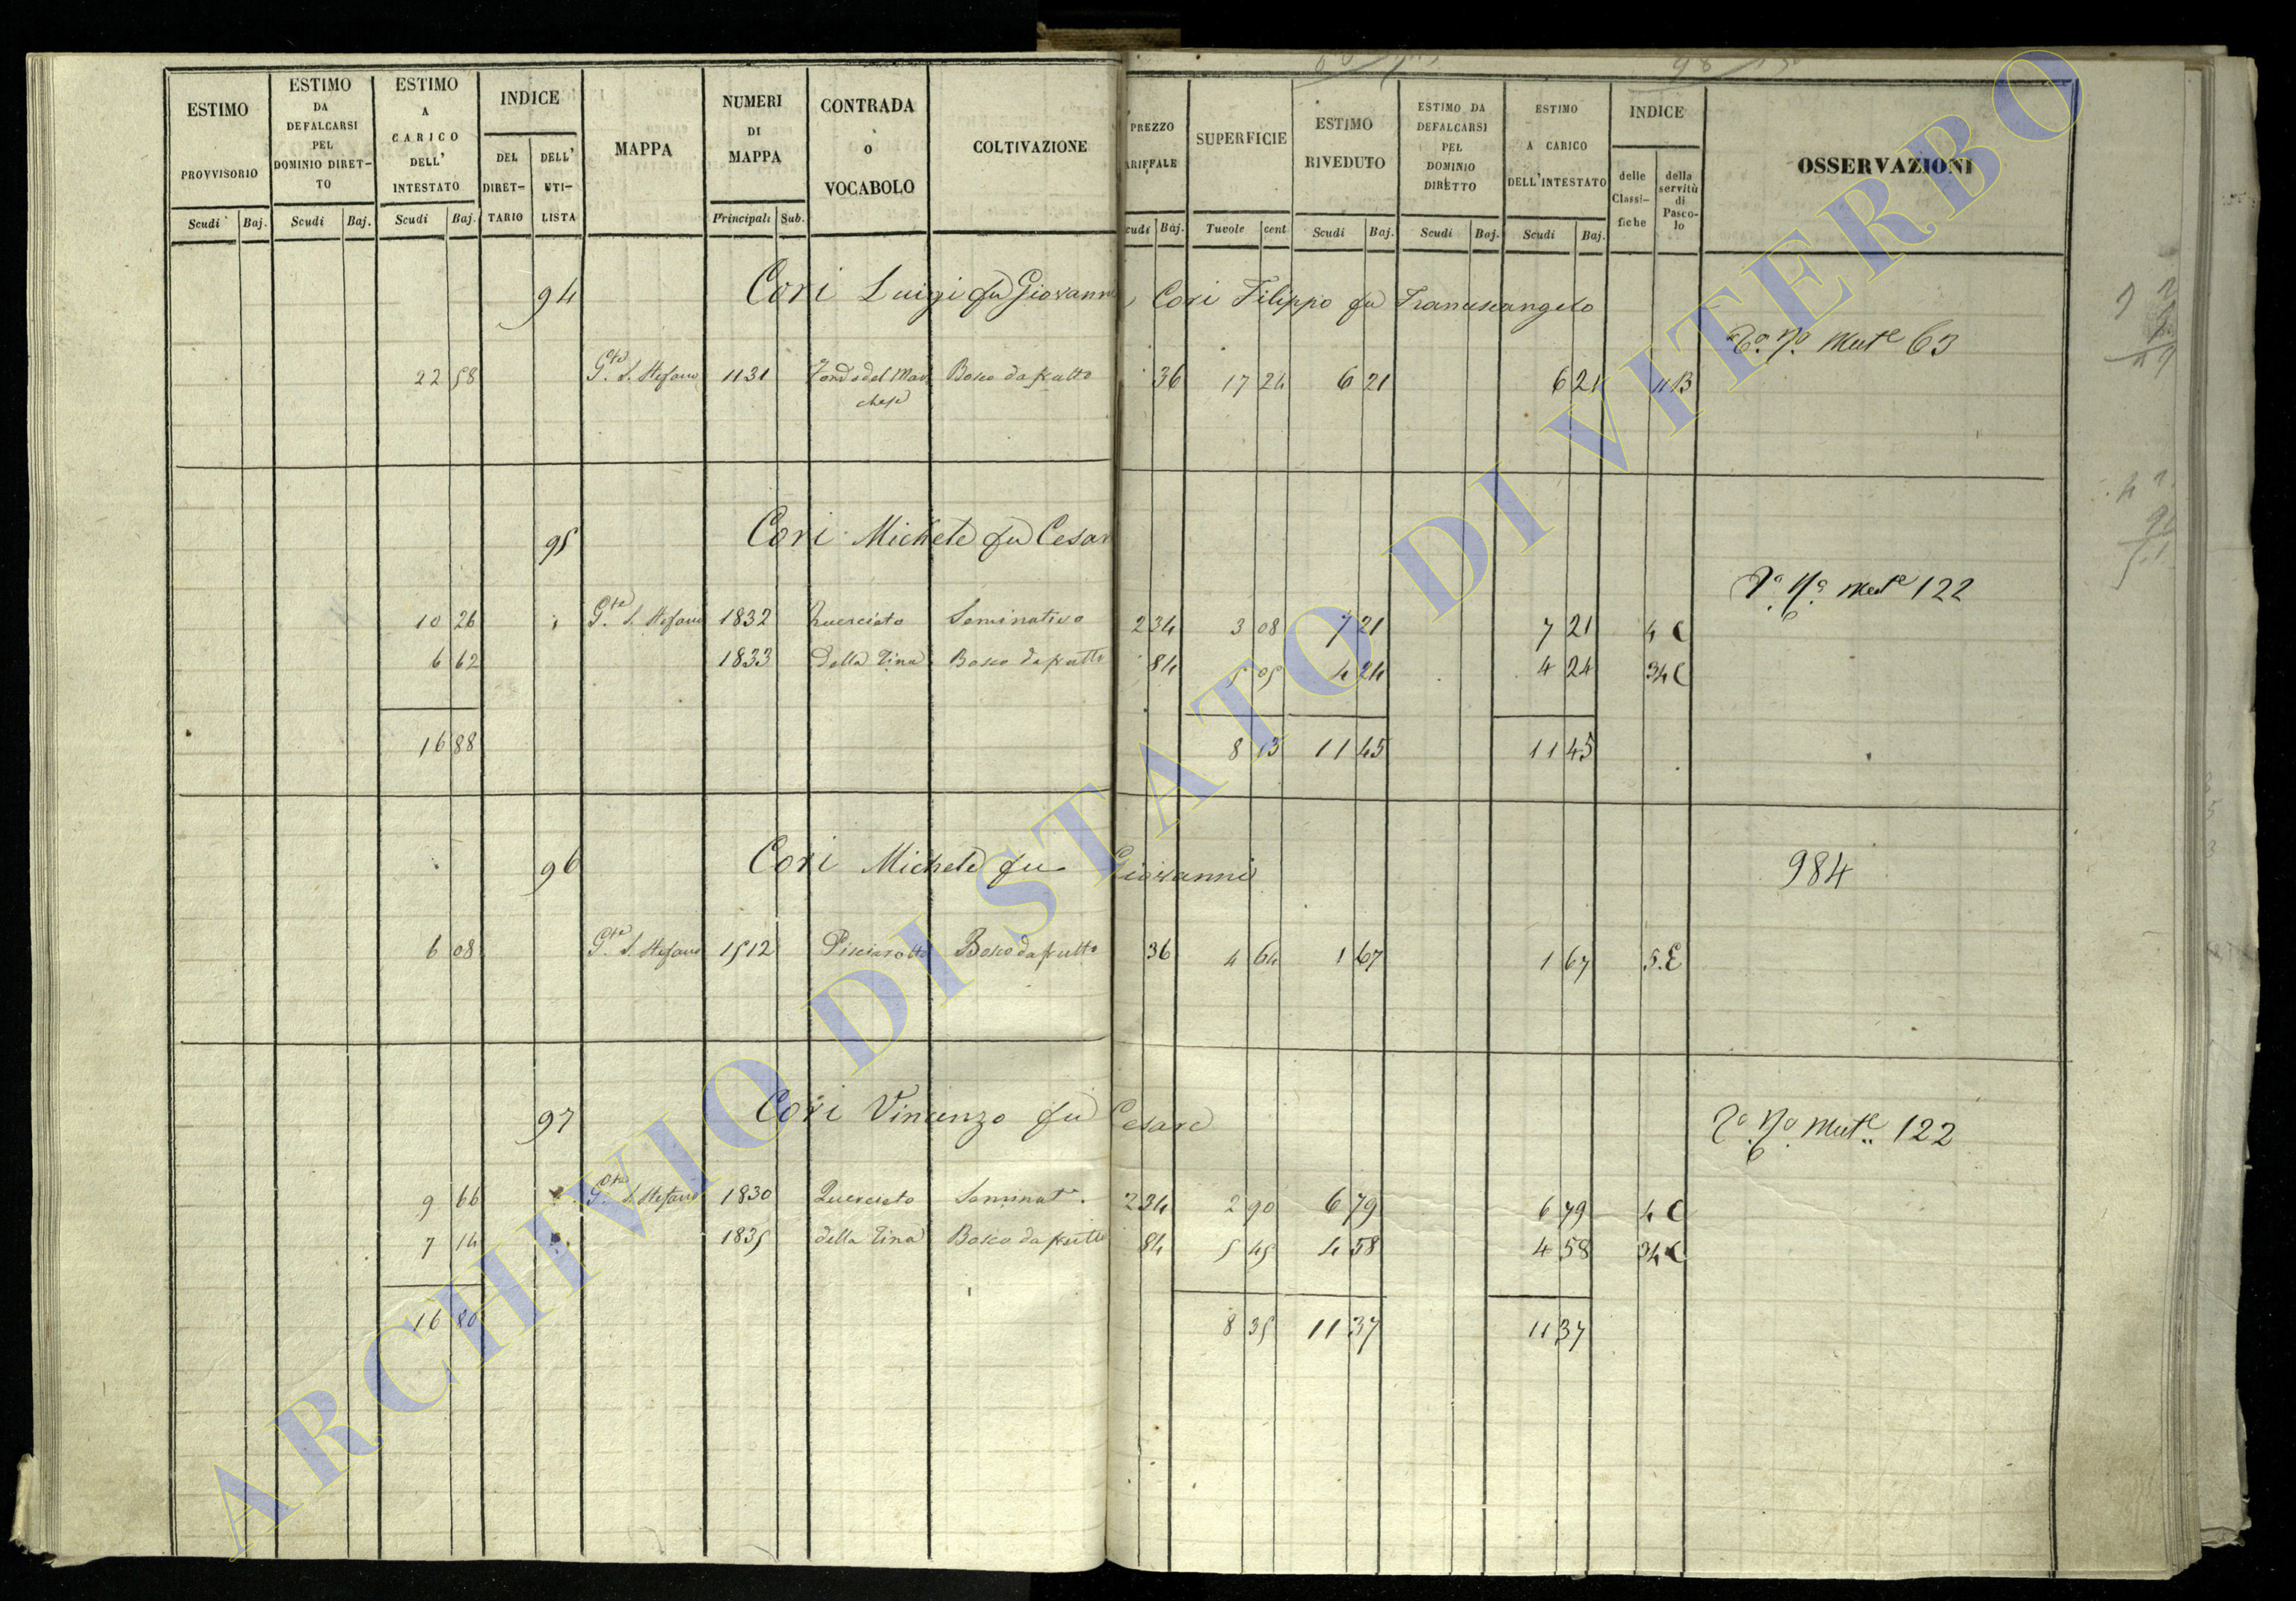 ESTIMO PROVVISORIO
Scudi Baj.
ESTIMO DA DEFALCARSI PEL DOMINIO DIRET-TO
Scudi Baj.
ESTIMO A CARICO DELL' INTESTATO
Scudi Baj.
INDICE
DEL DIRET-TARIO
DELL' UTI-LISTA
MAPPA
NUMERI DI MAPPA
Principali Sub.
CONTRADA o VOCABOLO
COLTIVAZIONE
PREZZO ARIFFALE
cudi Baj.
SUPERFICIE
Tavole cent
ESTIMO RIVEDUTO
Scudi Baj.
ESTIMO DA DEFALCARSI PEL DOMINIO DIRETTO
Scudi Baj.
ESTIMO A CARICO DELL'INTESTATO
Scudi Baj.
INDICE
delle Classi-fiche
della servitù di Pasco-lo
OSSERVAZIONI
94 Cori Luigi fu Giovanni, Cori Filippo fu Francescangelo
Mut.e 63
22 58 G.tta S. Stefano 1131 Fondo del Mar Bosco da frutto 36 17 24 6 21 6 21 11 B
chese
95 Cori Michele fu Cesar
Mut.e 122
10 26 G.tta S. Stefano 1832 Querceto Seminativo 2 34 3 08 7 21 7 21 4 C
6 62 1833 Della Tina Bosco da frutto 84 5 05 4 24 4 24 34 C
16 88 8 13 11 45 11 45
96 Cori Michele fu Giovanni 984
6 08 G.tta S. Stefano 1512 Pisciarotto Bosco da frutto 36 4 64 1 67 1 67 5. E
97 Cori Vincenzo fu Cesare Mut.e 122
9 66 G.tta S. Stefano 1830 Querceto Seminat.o 2 34 2 90 6 79 6 79 4 C
7 14 1835 della Tina Bosco da frutto 84 5 45 4 58 4 58 34 C
16 80 8 35 11 37 11 37
ARCHIVIO DI STATO DI VITERBO